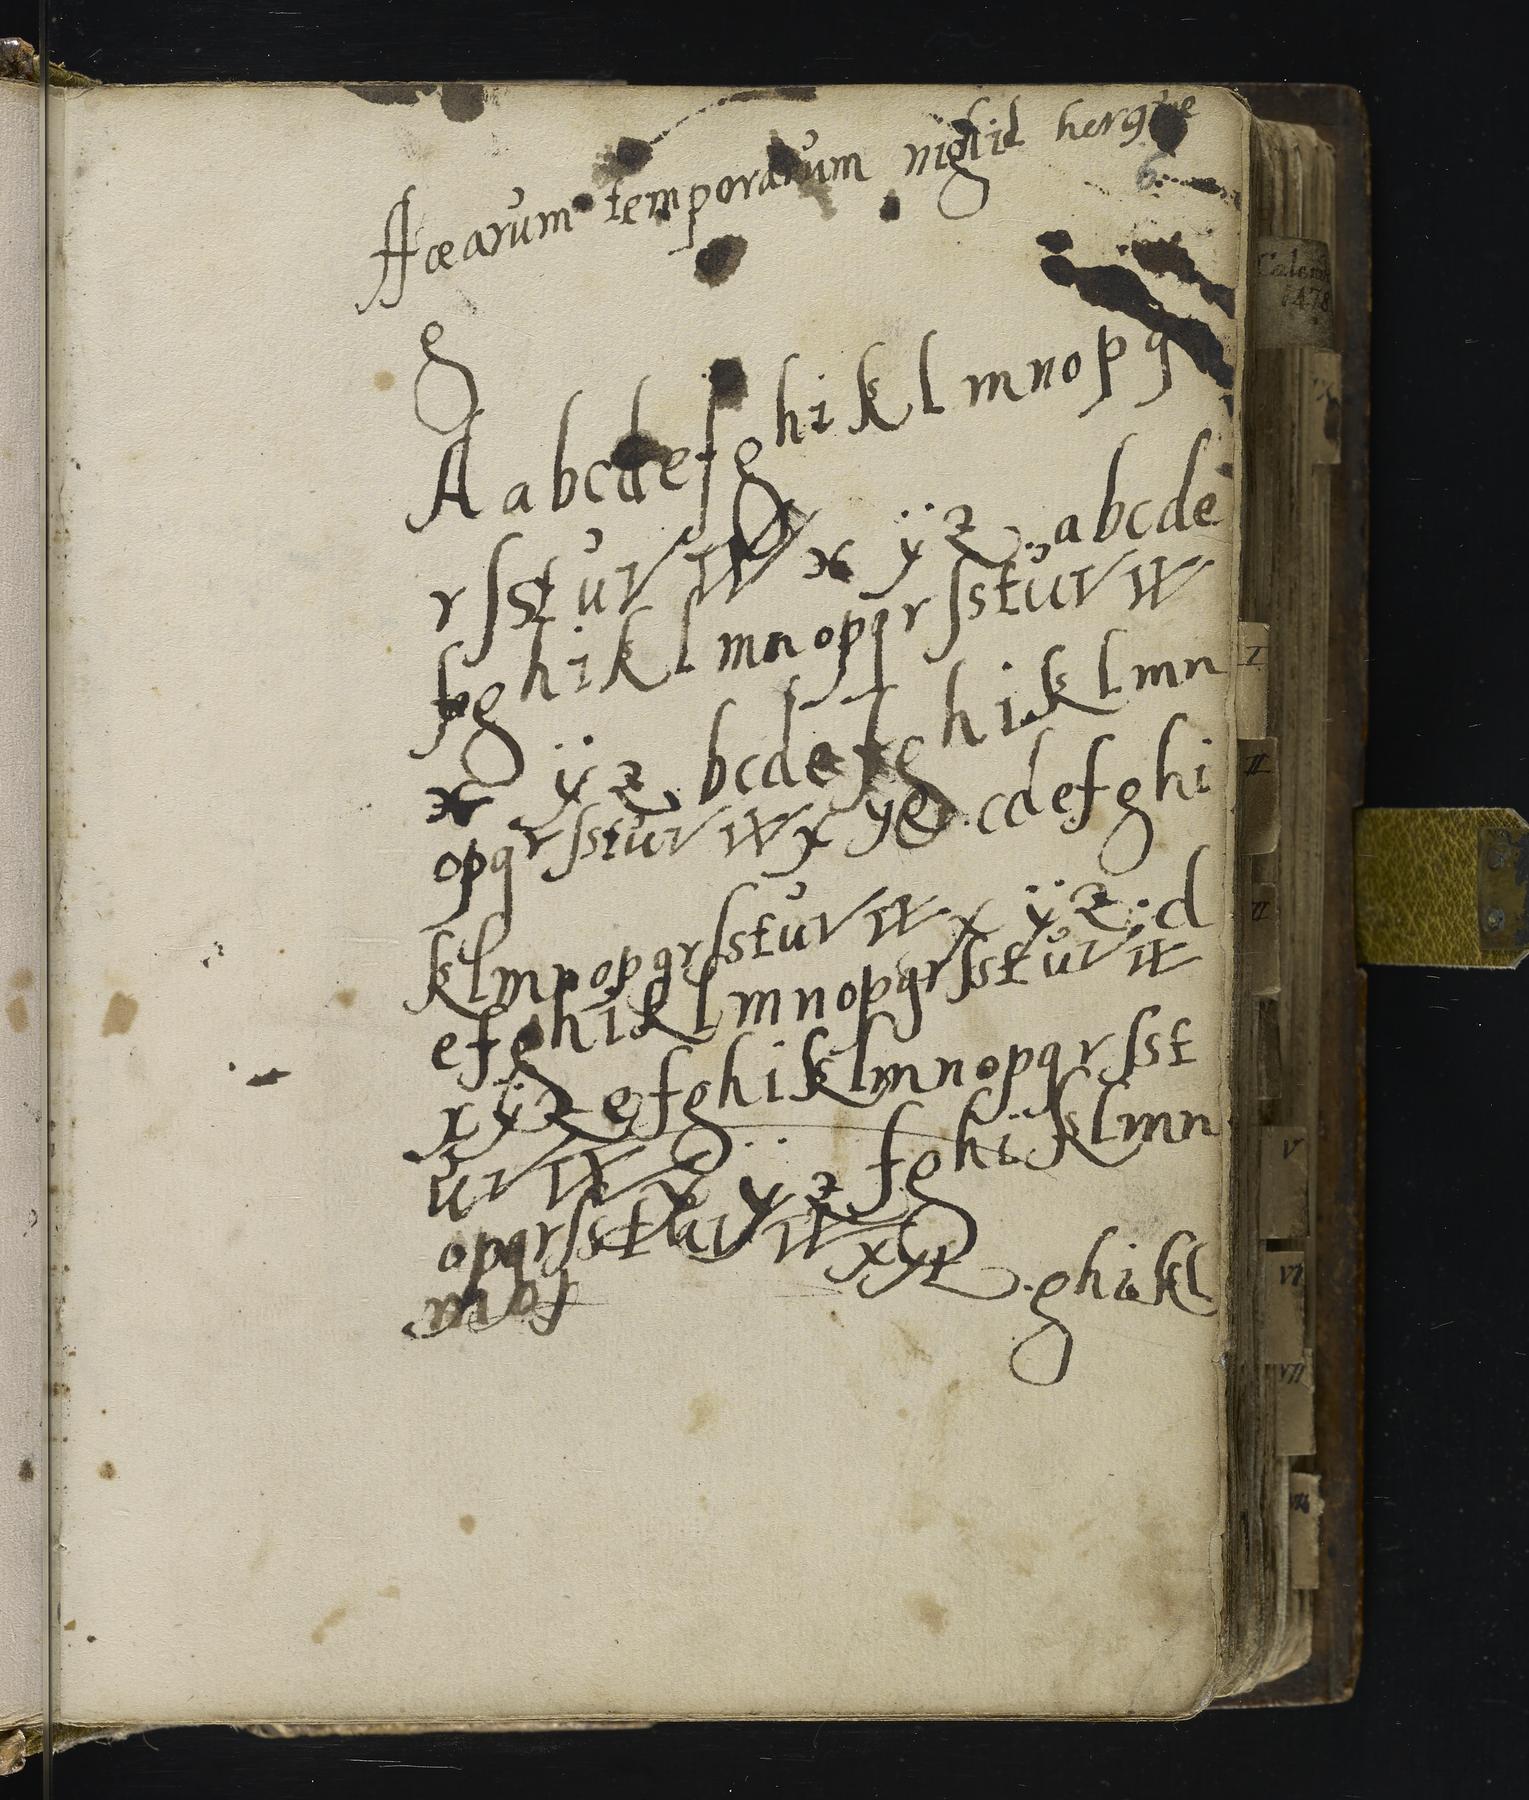 Aæarum temporarum nighil
6
g
A a b c d e f g h i k l m n o p q
r ſ s t ŭ v w x ÿ z. a b c d e
f g h i k l m n o p q r ſ s t ŭ v w
x ÿ z. b c d e f g h i k l m n
o p q r ſ s t ŭ v w x y z. c d e f g h i
k l m n o p q r ſ s t ŭ v w x ÿ z. d
e f g h i k l m n o p q r ſ s t ŭ v w
x ÿ z e f g h i k l m n o p q r ſ s t
ŭ v w x ÿ z f g h i k l m n
o p q r ſ s t ŭ v w x y z. g h i k l
Calend
1478
I
II
V
VI
VII